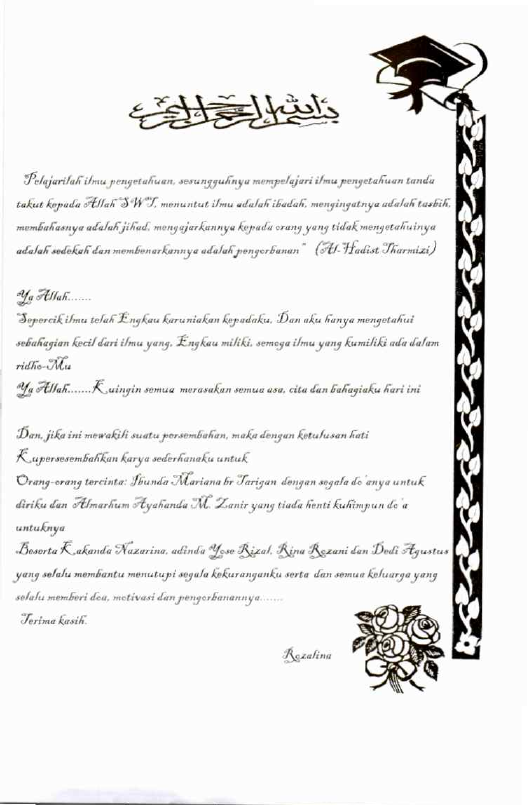 بسم الله الرحمن الرحيم
"Pelajarilah ilmu pengetahuan, sesungguhnya mempelajari ilmu pengetahuan tanda
takut kepada Allah SWT, menuntut ilmu adalah ibadah, mengingatnya adalah tasbih,
membahasnya adalah jihad, mengajarkannya kepada orang yang tidak mengetahuinya
adalah sedekah dan membenarkannya adalah pengorbanan" (Al-Hadist Tharmizi)
Ya Allah.......
Sepercik ilmu telah Engkau karuniakan kepadaku, Dan aku hanya mengetahui
sebahagian kecil dari ilmu yang, Engkau miliki, semoga ilmu yang kumiliki ada dalam
ridho-Mu
Ya Allah.......Kuingin semua merasakan semua asa, cita dan bahagiaku hari ini
Dan, jika ini mewakili suatu persembahan, maka dengan ketulusan hati
Kupersesembahkan karya sederhanaku untuk
Orang-orang tercinta: Ibunda Mariana br Tarigan dengan segala do'anya untuk
diriku dan Almarhum Ayahanda M. Zanir yang tiada henti kuhimpun do'a
untuknya
Beserta Kakanda Nazarina, adinda Yose Rizal, Rina Rozani dan Dedi Agustus
yang selalu membantu menutupi segala kekuranganku serta dan semua keluarga yang
selalu memberi doa, motivasi dan pengorbanannya.......
Terima kasih.
Rozalina